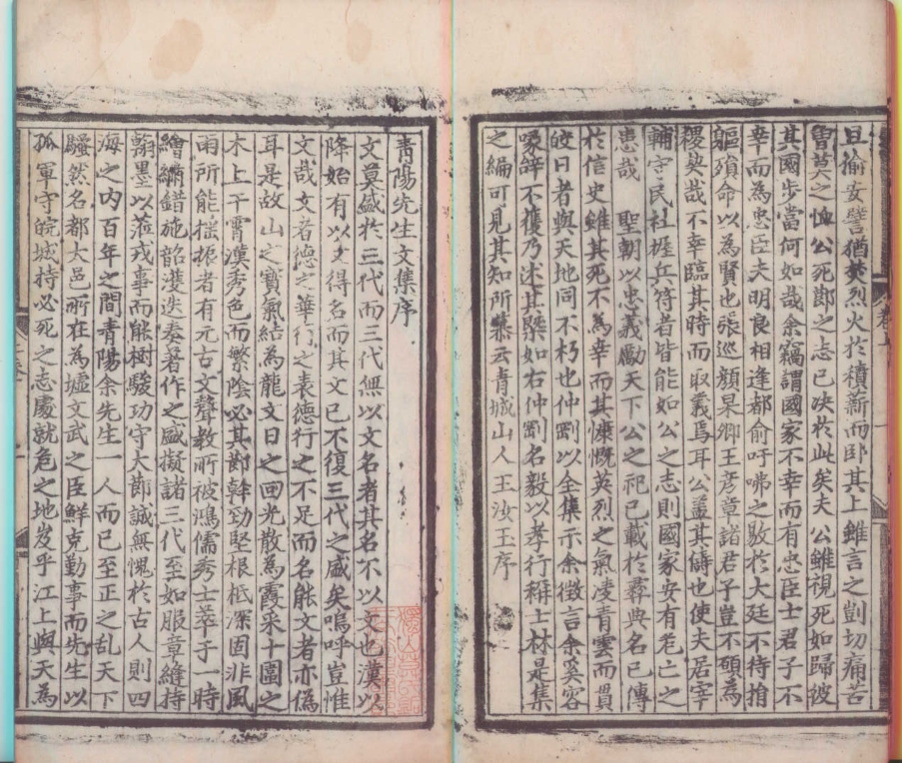 旦喻妄譬猶焚烈火扵積薪而臥其上雖言之剴切痛苦
曾莫之恤公死節之志已决扵此矣夫公雖視死如歸彼
其國步當何如哉余竊謂國家不幸而有忠臣士君子不
幸而為忠臣夫明良相逢都俞吁咈之歡扵大廷不待捐
軀殞命以為賢也張巡顔杲卿王彦章諸君子豈不碩為
稷契哉不幸臨其時而取義焉耳公盖其儔也使夫居宰
輔宰民社握兵符者皆能如公之志則國家安有危亡之
患哉 聖朝以忠義勵天下公之祀已載扵彛典名已傳
扵信史雖其死不為幸而其慷慨英烈之氣凌青雲而貫
皎日者與天地同不朽也仲剛以全集示余徵言余奚容
喙辞不獲乃述其槩如右仲剛名毅以孝行稱士林是集
之編可見其知所慕云青城山人王汝玉序
青陽先生文集序
文莫盛扵三代而三代無以文名者其名不以文也漢以
降始有以文得名而其文已不復三代之盛矣嗚呼豈惟
文哉文者德之華行之表德行之不足而名能文者亦偽
耳是故山之寳氣結為龍文日之回光散為霞采十圍之
木上干霄漢秀色而繁陰必其節幹勁堅根柢深固非風
雨所能揺振者有元古文聲教所被鴻儒秀士萃于一時
繪綉錯施韶濩迭奏著作之盛擬諸三代至如服章縫持
翰墨以蒞戎事而能樹駿功守大節誠無愧扵古人則四
海之内百年之間青陽余先生一人而已至正之乱天下
騷然名都大邑所在為墟文武之臣鮮克勤事而先生以
孤軍守皖城持必死之志處就危之地岌乎江上與天為